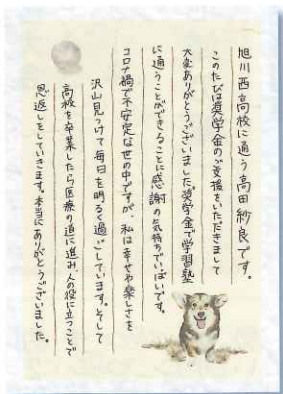 旭川西高校に通う高田紗良です。
このたびは奨学金のご支援をいただきまして
大変ありがとうございました。奨学金で学習塾
に通うことができることに感謝の気持ちでいっぱいです。
コロナ禍で不安定な世の中ですが、私は幸せや楽しさを
沢山見つけて毎日を明るく過ごしています。そして
高校を卒業したら医療の道に進み人の役に立つことで
恩返しをしていきます。本当にありがとうございました。